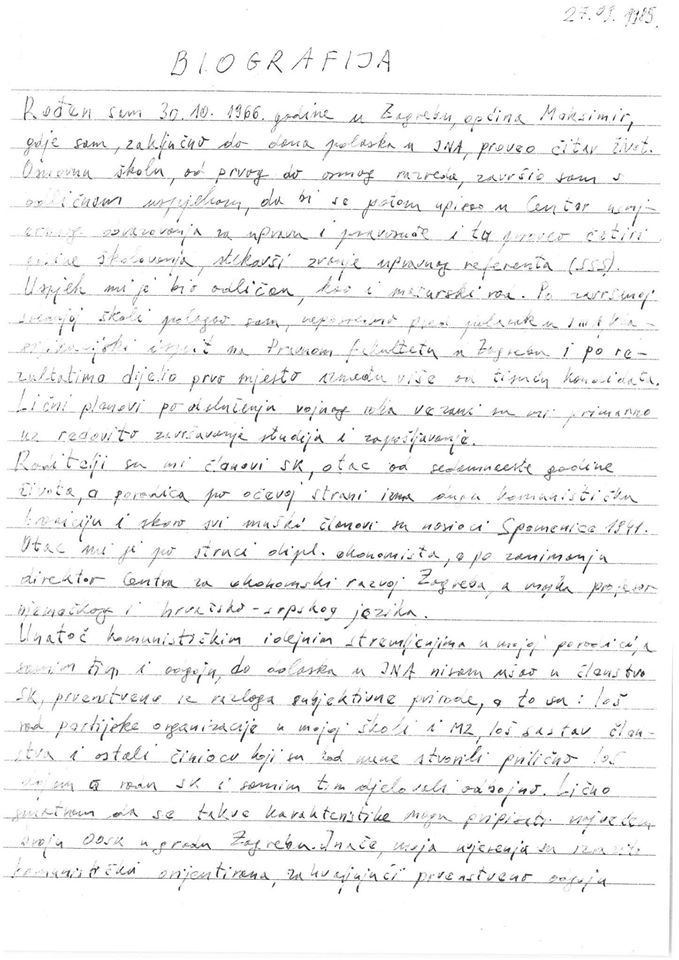 27.09.1985.
BIOGRAFIJA
Rođen sam 30.10.1966. godine u Zagrebu, općina Maksimir,
gdje sam, zaključno do dana polaska u JNA, proveo čitav život.
Osnovnu školu, od prvog do osmog razreda, završio sam s
odličnim uspjehom, da bi se potom upisao u Centar usmje-
renog obrazovanja za upravu i pravosuđe i tu proveo četiri
godine školovanja, stekavši zvanje upravnog referenta (SSS).
Uspjeh mi je bio odličan, kao i maturski rad. Po završenoj
srednjoj školi polagao sam, neposredno pred polazak u
ispit na Pravnom fakultetu u Zagrebu i po re-
zultatima dijelio prvo mjesto između više od tisuću kandidata.
Lični planovi po odsluženju vojnog roka vezani su mi primarno
uz redovito završavanje studija i zapošljavanje.
Roditelji su mi članovi SK, otac od sedamnaeste godine
života, a porodica po očevoj strani ima dugu komunističku
tradiciju i skoro svi muški članovi su nosioci Spomenice 1941.
Otac mi je po struci dipl. ekonomista, a po zanimanju
direktor Centra za ekonomski razvoj Zagreba, a majka profesor
njemačkog i hrvatsko-srpskog jezika.
Unatoč komunističkim idejnim stremljenjima u mojoj porodici, a
samim tim i odgoju, do odlaska u JNA nisam ušao u članstvo
SK, prvenstveno iz razloga subjektivne prirode, a to su: loš
rad partijske organizacije u mojoj školi i MZ, loš sastav član-
stva i ostali činioci koji su kod mene stvorili prilično loš
o radu SK i samim tim djelovali odbojno. Lično
smatram da se takve karakteristike mogu pripisati najvećem
broju OOSK u gradu Zagrebu. Inače, moja uvjerenja su
komunistički orijentirana, zahvaljujući prvenstveno odgoju